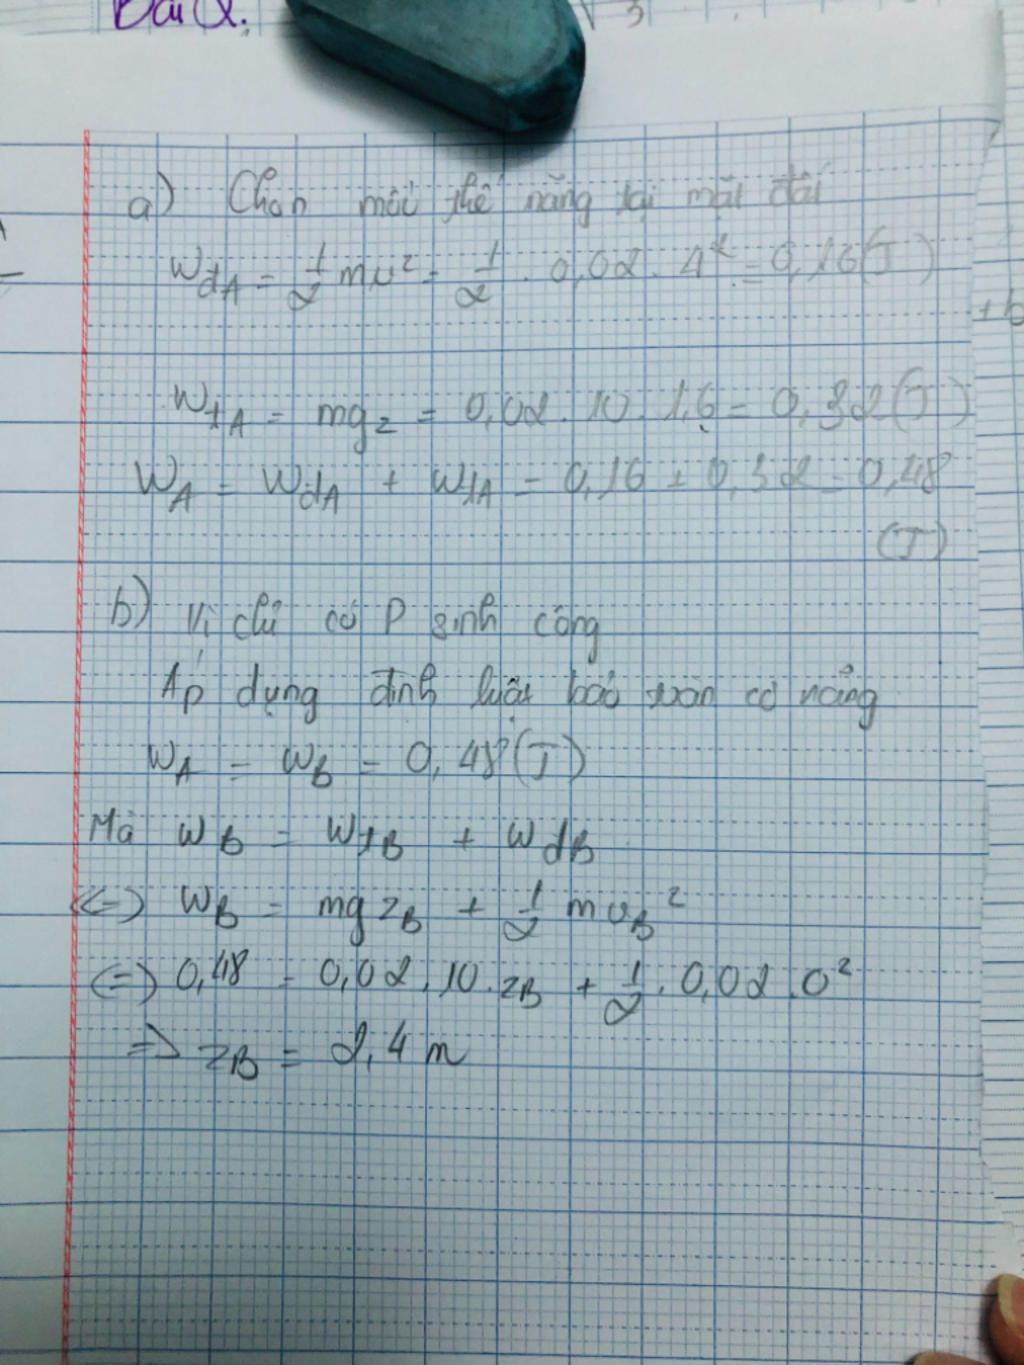 Bài 2:
3
a) Chọn mốc thế năng tại mặt đất
WđA = 1/2 mv² = 1/2 . 0,02 . 4² = 0,16(J)
WtA = mgz = 0,02 . 10 . 1,6 = 0,32(J)
WA = WđA + WtA = 0,16 + 0,32 = 0,48
(J)
b) Vì chỉ có P sinh công
Áp dụng định luật bảo toàn cơ năng
WA = WB = 0,48(J)
Mà WB = WtB + WđB
(=) WB = mgzB + 1/2 mvB²
(=) 0,48 = 0,02 . 10 . zB + 1/2 . 0,02 . 0²
=> zB = 2,4 m